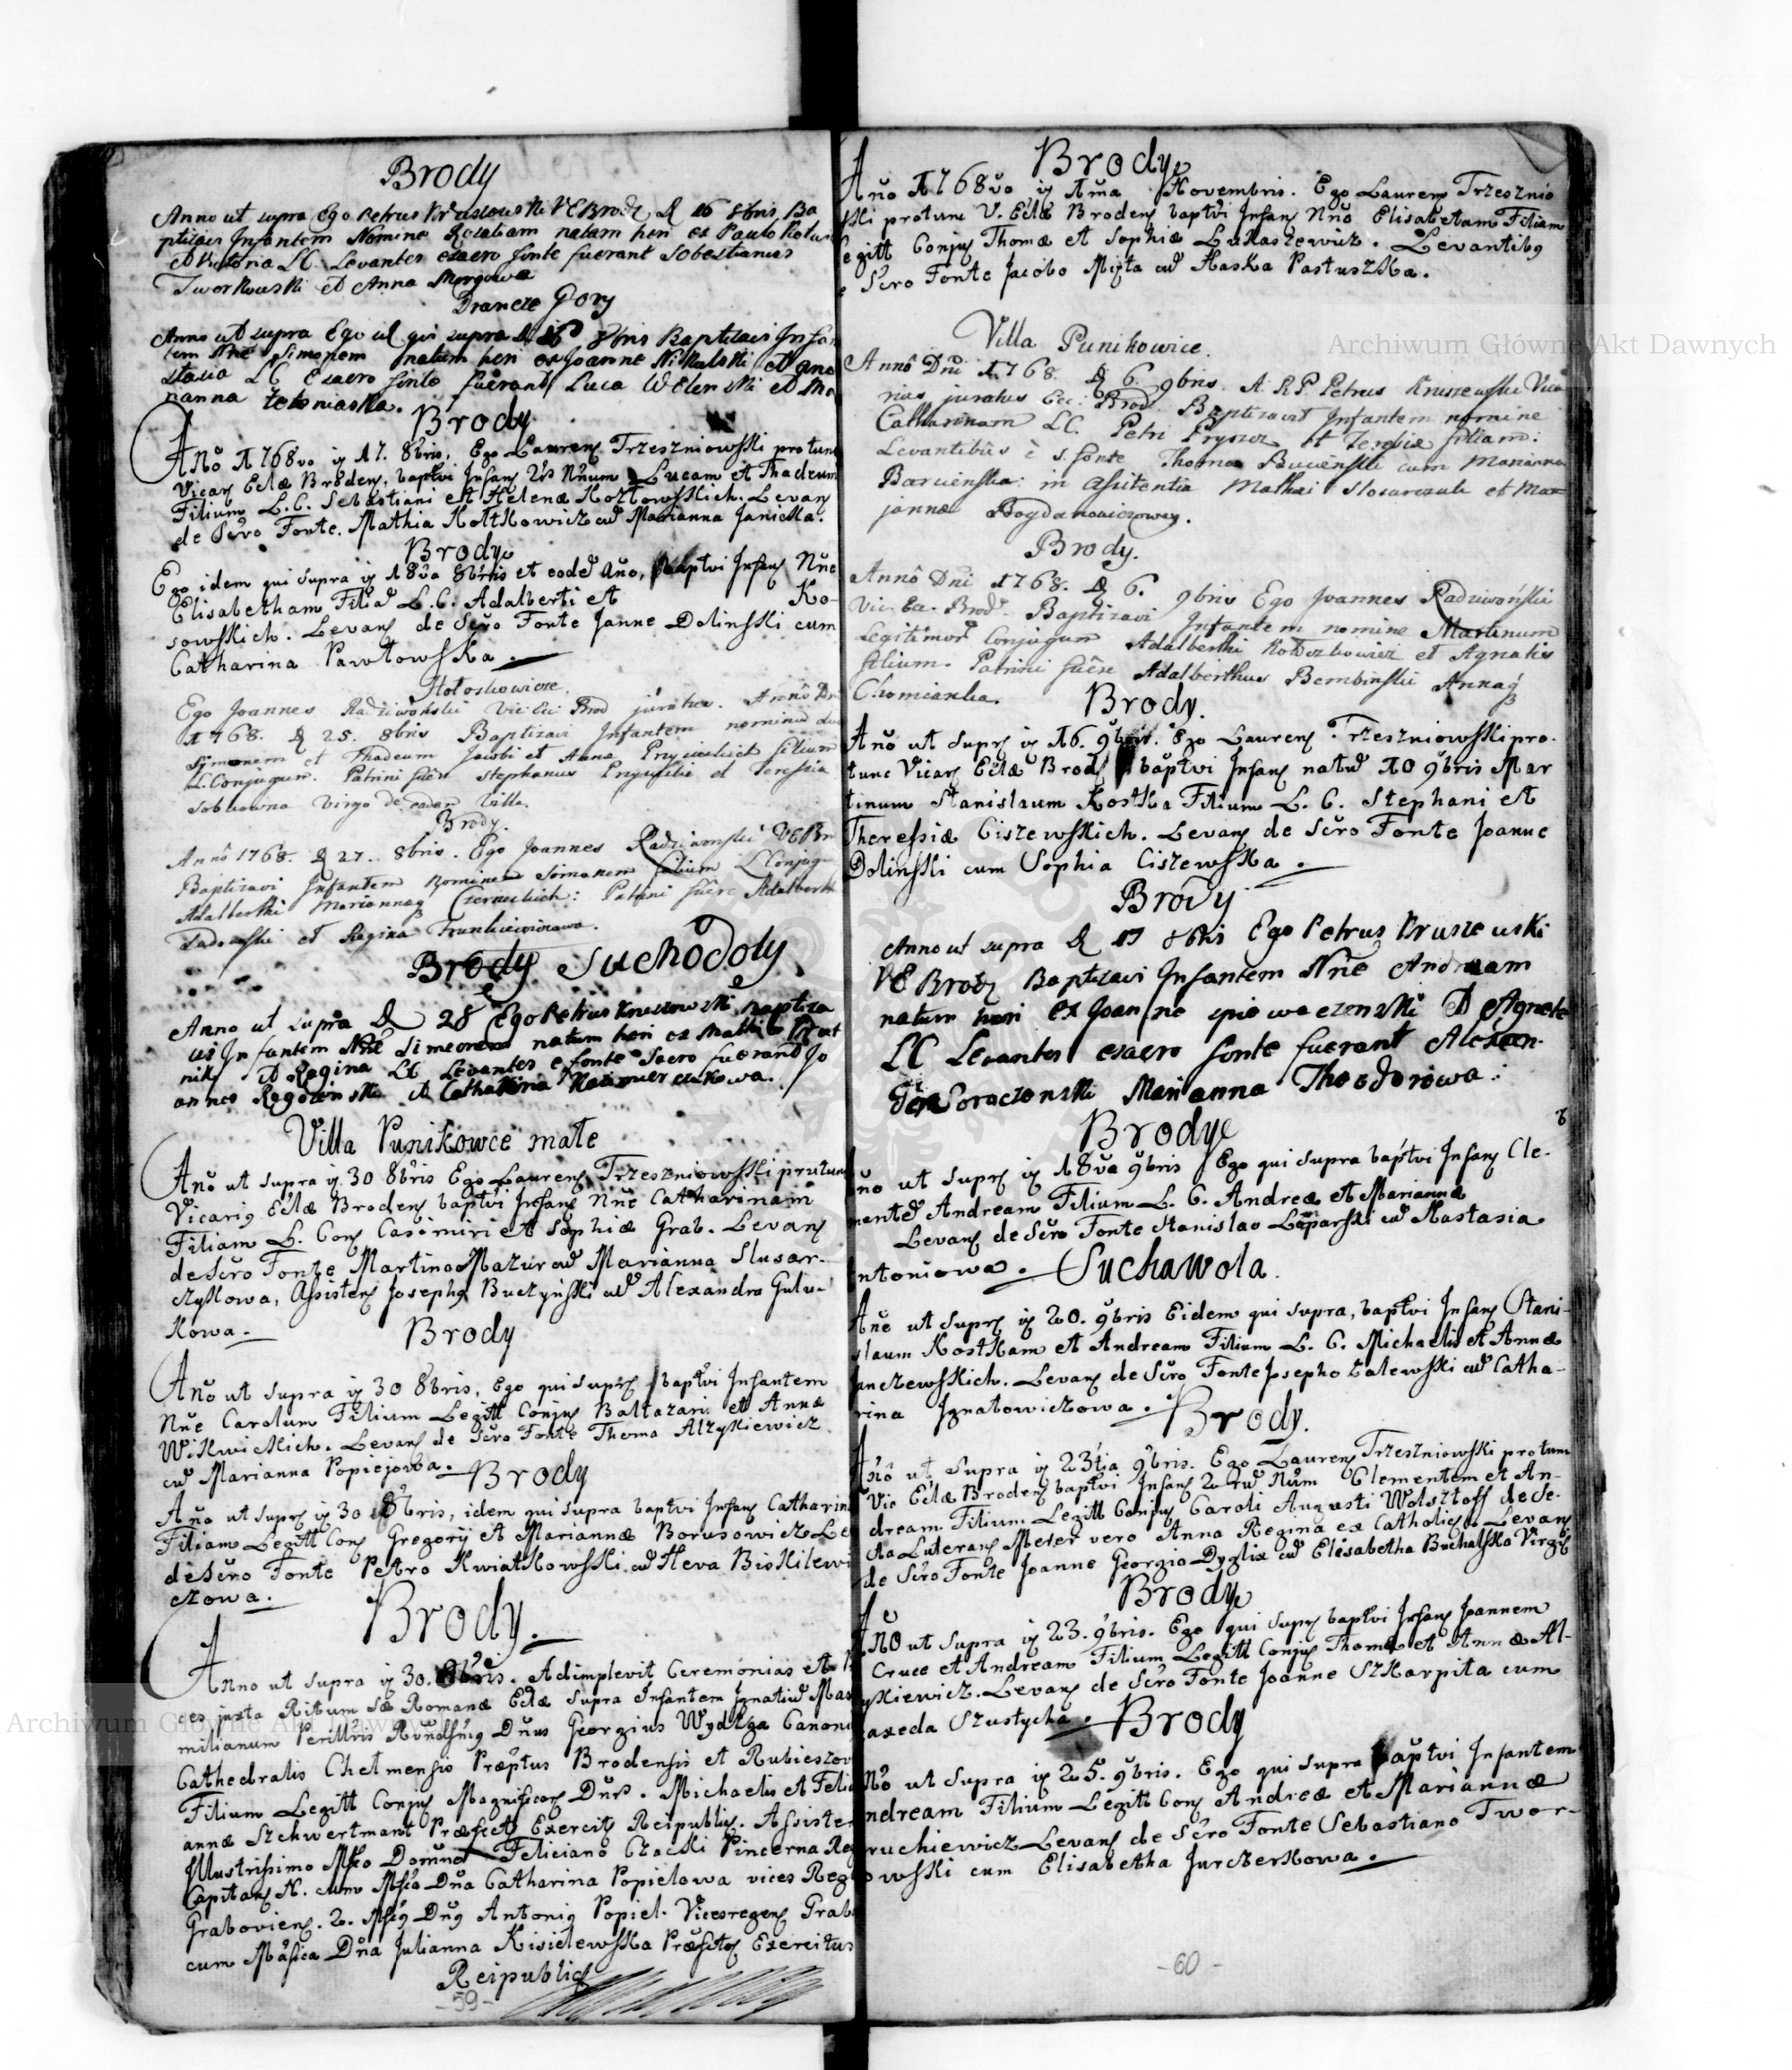 Brody
Anno ut supra Ego Petrus Kruszowski VE Brod d 16 8bris Ba
ptizavi Infantem Nomine Rosaliam natam heri ex Paulo
et Victoria LC. Levantes esacro fonte fuerant Sobestianus
Tworkowski et Anna Morgowa
Brancze Gory
Anno ut supra Ego id qui supra d 16 8bris Baptizavi Infan
tem Nne Simonem natum heri ex Joanne Nikalski et Ana
stasia LC Esacro fonte fuerant Luca Welenski et Ma
rianna
Brody
Año 1768vo ij 17. 8bris. Ego Laurenȝ Trzeszniowski protunc
Vicarȝ Eclæ Brodenȝ. baptvi Infanȝ Lucam et Thadeum
Filium L.C. Sebastiani et Helenæ Kozłowskich. Levanȝ
de Scro Fonte. Mathia Kołtkowicz cũ Marianna Janicka.
Brody
Ego idem qui supra ij 18va 8bris et eodē año, baptvi Infanȝ Nñe
Elisabetham Filiã L.C. Adalberti et Ko-
sowskich. Levanȝ de Scro Fonte Janne Dolinski cum
Catharina Pawłowska.
Hołoskowicze.
Ego Joannes Radziwoński Vic Ecc Brod juratus. Annô Dni
1768. d 25. 8bris Baptizavi Infantem nomine
Simonem et Thadeum Jacobi et Anna filium
L. Conjugum. Patrini fuêre Stephanus et Teressia
virgo de eadem villa.
Brody.
Annô 1768. d 27. 8bris. Ego Joannes Radziwonski VEBro
Baptizavi Infantem Nomine Simonem filium L Conjugu
Adalberthi Mariannaȝ Czerneckich: Patrini fuêre Adalberth
Sadowski et Regina
Brody Suchodoly
Anno ut supra d 28 Ego Petrus Kruszowski Baptiza
vi Infantem Nne Simeonem natum heri ex
et Regina LC Levantes e fonte sacro fuerant Jo
annes et Catharina
Villa Punikowce małe
Año ut supra ij 30 8bris Ego Laurenȝ Trzeszniowski protunc
Vicariȝ Eclæ Brodenȝ baptvi Infanȝ Nñe Catharinam
Filiam L. Conȝ Casimiri et Sophiæ Grab. Levanȝ
de Scro Fonte Martino Mazur cũ Marianna Slusar-
czykowa, Assistenȝ Josephȝ Buczyński cũ Alexandra Gulu-
kowa.
Brody
Año ut supra ij 30 8bris, Ego qui supra baptvi Infantem
Nñe Carolum Filium Legitt Conjuȝ Baltazari et Annæ
Wikwickich. Levanȝ de Scro Fonte Thoma Alzykiewicz
cũ Marianna Popiejowa.
Brody
Año ut suprȝ ij 30 8bris, idem qui supra baptvi Infanȝ Catharin
Filiam Legitt Conȝ Gregorij et Mariannæ Borusowicz Le
de Scro Fonte Petro Kwiatkowski cũ Heva Biskilewi
czowa.
Brody.
Anno ut supra ij 30. 8bris. Adimplevit Ceremonias et
ces juxta Ritum Sæ Romanæ Eclæ supra Infantem Ignatiũ Max
milianum Perillris Rvndssmȝ Dnus Georgius Wydżga Canoni
Cathedralis Chelmensis Præptus Brodensis et Rubieszov
Filium Legitt Conjuȝ Magnificorȝ Dnrȝ. Michaelis et Felici
annæ Szchwertmant Præfectȝ Exercitȝ Reipublicȝ. Assisten
Illustrissimo Mgfco Domino Feliciano Czacki Pincerna Reg
Capitanȝ N. cum Mgfca Dña Catharina Popielowa vices Reg
Grabovienȝ. 2. Mgfcȝ Dñȝ Antoniȝ Popiel Vicesregenȝ Grab
cum Mgfica Dña Julianna Kisielewska Præfctȝ Exercitus
Reipublicȝ
- 59 -
Brody
Año 1768vo ij 1ma Novembris. Ego Laurenȝ Trzeszniow
ski protunc V. Eclæ Brodenȝ baptvi Infanȝ Nño Elisabetham Filiam
Legitt Conjuȝ Thomæ et Sophiæ Lukaszewicz. Levantibȝ
e Scro Fonte Jacobo Mięta cũ Haska Pastuszka.
Villa Punikowice.
Annô Dni 1768. d 6. 9bris. A. R.P. Petrus Kruszewski Vica
rius juratus Ecc: Brod. Baptizavit Infantem nomine
Catharinam LC. Petri et filiam:
Levantibus è S. fonte Thoma cum Marianna
in Assitentia Mathai Slosarczuk et Mar
janna Bogdanowiczowey.
Brody.
Annô Dni 1768. d 6. 9bris Ego Joannes Radziwoński
Vic. Ecc. Brod. Baptizavi Infantem nomine Martinum
Legitimorȝ Conjugum Adalberthi Kołtkowicz et Agnatis
filium. Patrini fuêre Adalberthus Bembiński Annaȝ
Chomianka.
Brody.
Año ut suprȝ ij 16. 9bris. Ego Laurenȝ Trzeszniowski pro-
tunc Vicarȝ Eclæ Brodȝ baptvi Infanȝ natũ 10 9bris Mar
tinum Stanislaum Kostka Filium L. C. Stephani et
Theressiæ Ciszewskich. Levanȝ de Scro Fonte Joanne
Dolinski cum Sophia Ciszewska.
Brody
Anno ut supra d 17 9bris Ego Petrus Kruszewski
VE Brodȝ Baptizavi Infantem Nne Andream
natum heri ex Joanne et Agnete
LC Levantes esacro fonte fuerant Alexan-
der Marianna Theodorowa.
Brody
8
Año ut suprȝ ij 18va 9bris Ego qui supra baptvi Infanȝ Cle-
mentē Andream Filium L. C. Andreæ et Mariannæ
Levanȝ de Scro Fonte Stanislao Łaparski cũ Nastasia
Antoniowa.
Suchawola
Año ut suprȝ ij 20. 9bris Eidem qui supra, baptvi Infanȝ Stani-
slaum Kostkam et Andream Filium L. C. Michaelis et Annæ
Janczewskich. Levanȝ de Scro Fonte Josepho Zalewski cũ Catha-
rina Ignatowiczowa.
Brody.
Año ut supra ij 23tia 9bris. Ego Laurenȝ Trzeszniowski protunc
Vic Eclæ Brodenȝ baptvi Infanȝ Clementem et An-
dream Filium Legitt Conjuȝ Caroli Augusti Wolsztoff de Se-
cta Luteranȝ Meter vero Anna Regina ex Catholicȝ Levanȝ
de Scro Fonte Joanne Georgio Dyglix cũ Elisabetha Buchalska Virgȝ
Brody
Año ut supra ij 23. 9bris. Ego qui suprȝ baptvi Infanȝ Joannem
Cruce et Andream Filium Legitt Conjuȝ Thomæ et Annæ Al-
zykiewicz. Levanȝ de Scro Fonte Joanne Szkarpita cum
Praxeda Szustycha.
Brody
Año ut supra ij 25. 9bris. Ego qui supra baptvi Infantem
Andream Filium Legitt Conȝ Andreæ et Mariannæ
ruchiewicz Levanȝ de Scro Fonte Sebastiano Twor-
kowski cum Elisabetha Jurczerkowa.
- 60 -
Archiwum Główne Akt Dawnych
Archiwum Główne Akt Dawnych